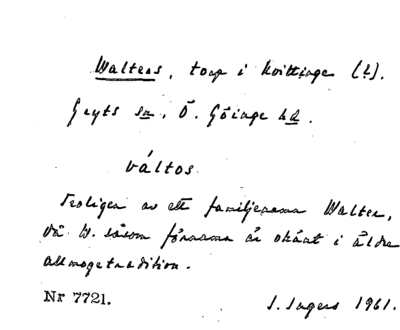 Walters, torp i Kvittinge (h).
Gryts sn, Ö. Göinge hd.
váltos
Troligen av ett familjenamn Walter,
då W. såsom förnamn är okänt i äldre
allmogetradition.
Nr 7721.
I. Ingers 1961.